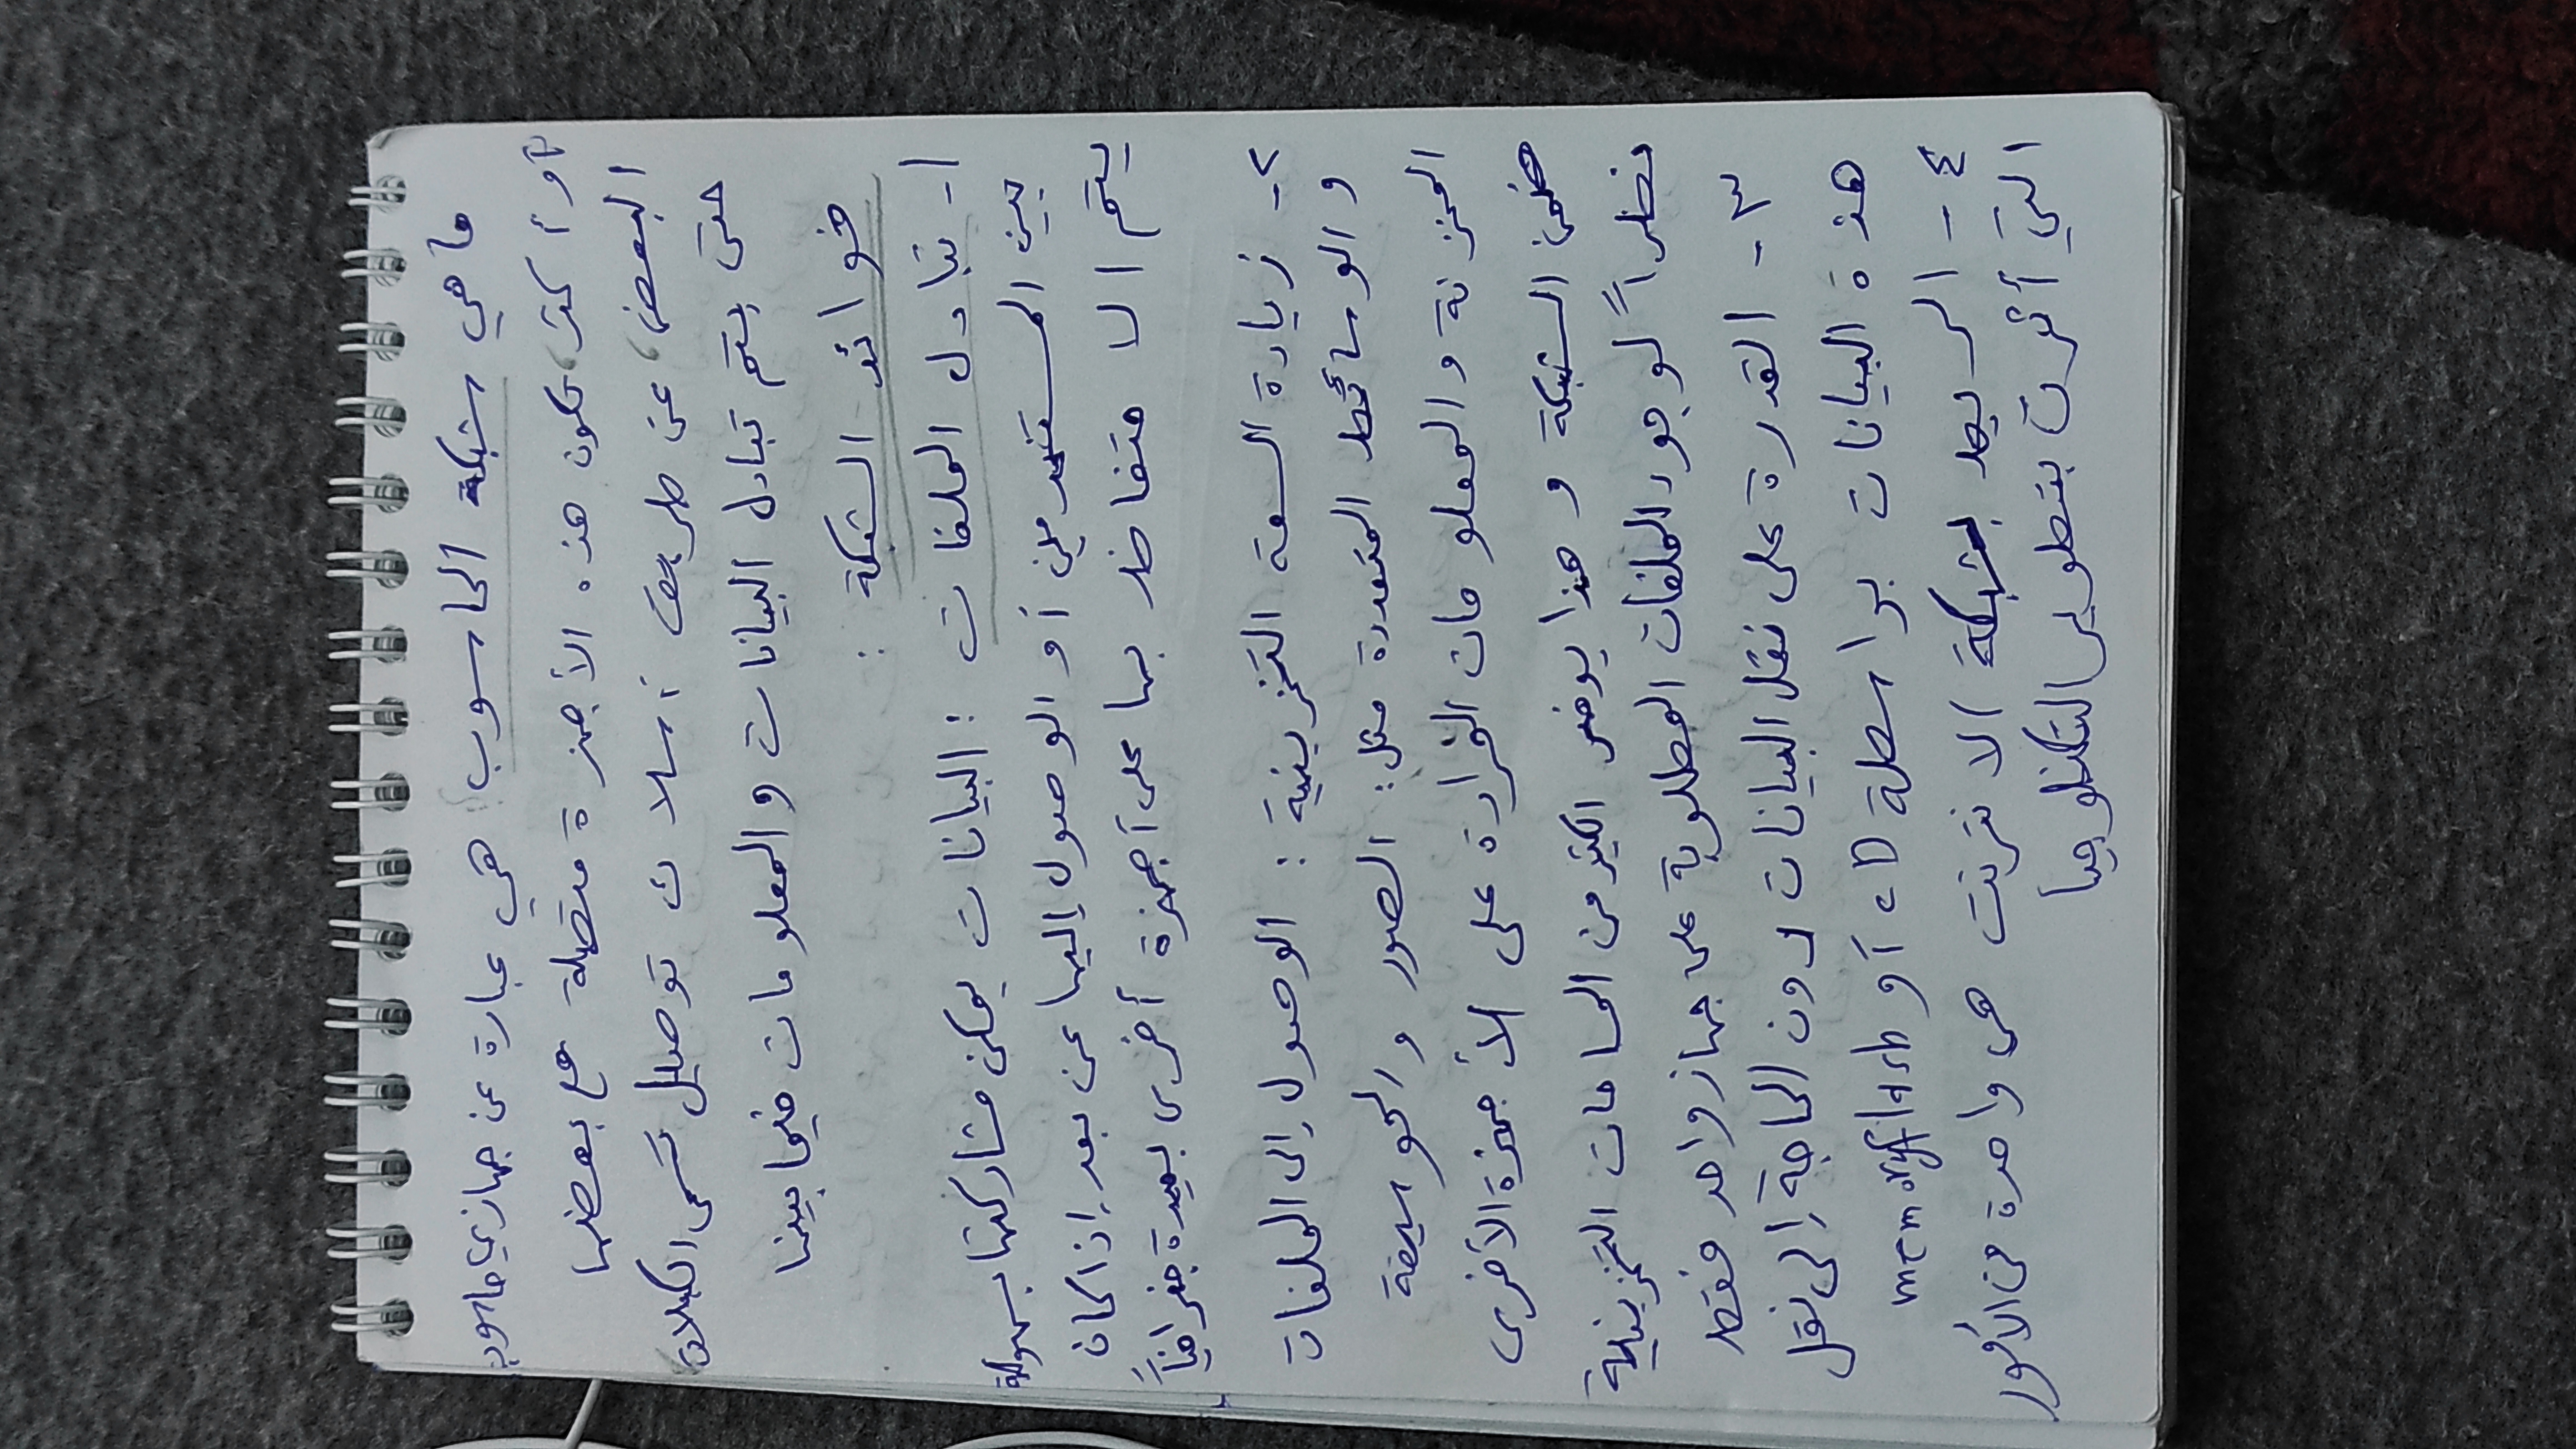 ما هي شبكة الحاسوب؟ هي عبارة عن جهازي حاسوب
أو أكثر، تكون هذه الأجهزة متصلة مع بعضها
البعض، عن طريق أسلاك توصيل تسمى الكبلات
حتى يتم تبادل البيانات والمعلومات فيما بينها
فوائد الشبكة :
١- تبادل الملفات : البيانات يمكن مشاركتها بسهولة
بين المستخدمين أو الوصول إليها عن بعد إذا كان
يتم الاحتفاظ بها على أجهزة أخرى بعيدة جغرافياً
٢- زيادة السعة التخزينية : الوصول إلى الملفات
والوسائط المتعددة مثل: الصور والموسيقة
المخزنة والمعلومات على الأجهزة الأخرى
ضمن الشبكة وهذا يوفر الكثير من المساحات التخزينية
نظراً لوجود الملفات المطلوبة على جهاز واحد فقط
٣- القدرة على نقل البيانات دون الحاجة إلى نقل
هذة البيانات بواسطة CD أو memoryflash
٤- الربط بشبكة الانترنت هي واحدة من الأمور
التي أثرت بتطوير التكنلوجيا